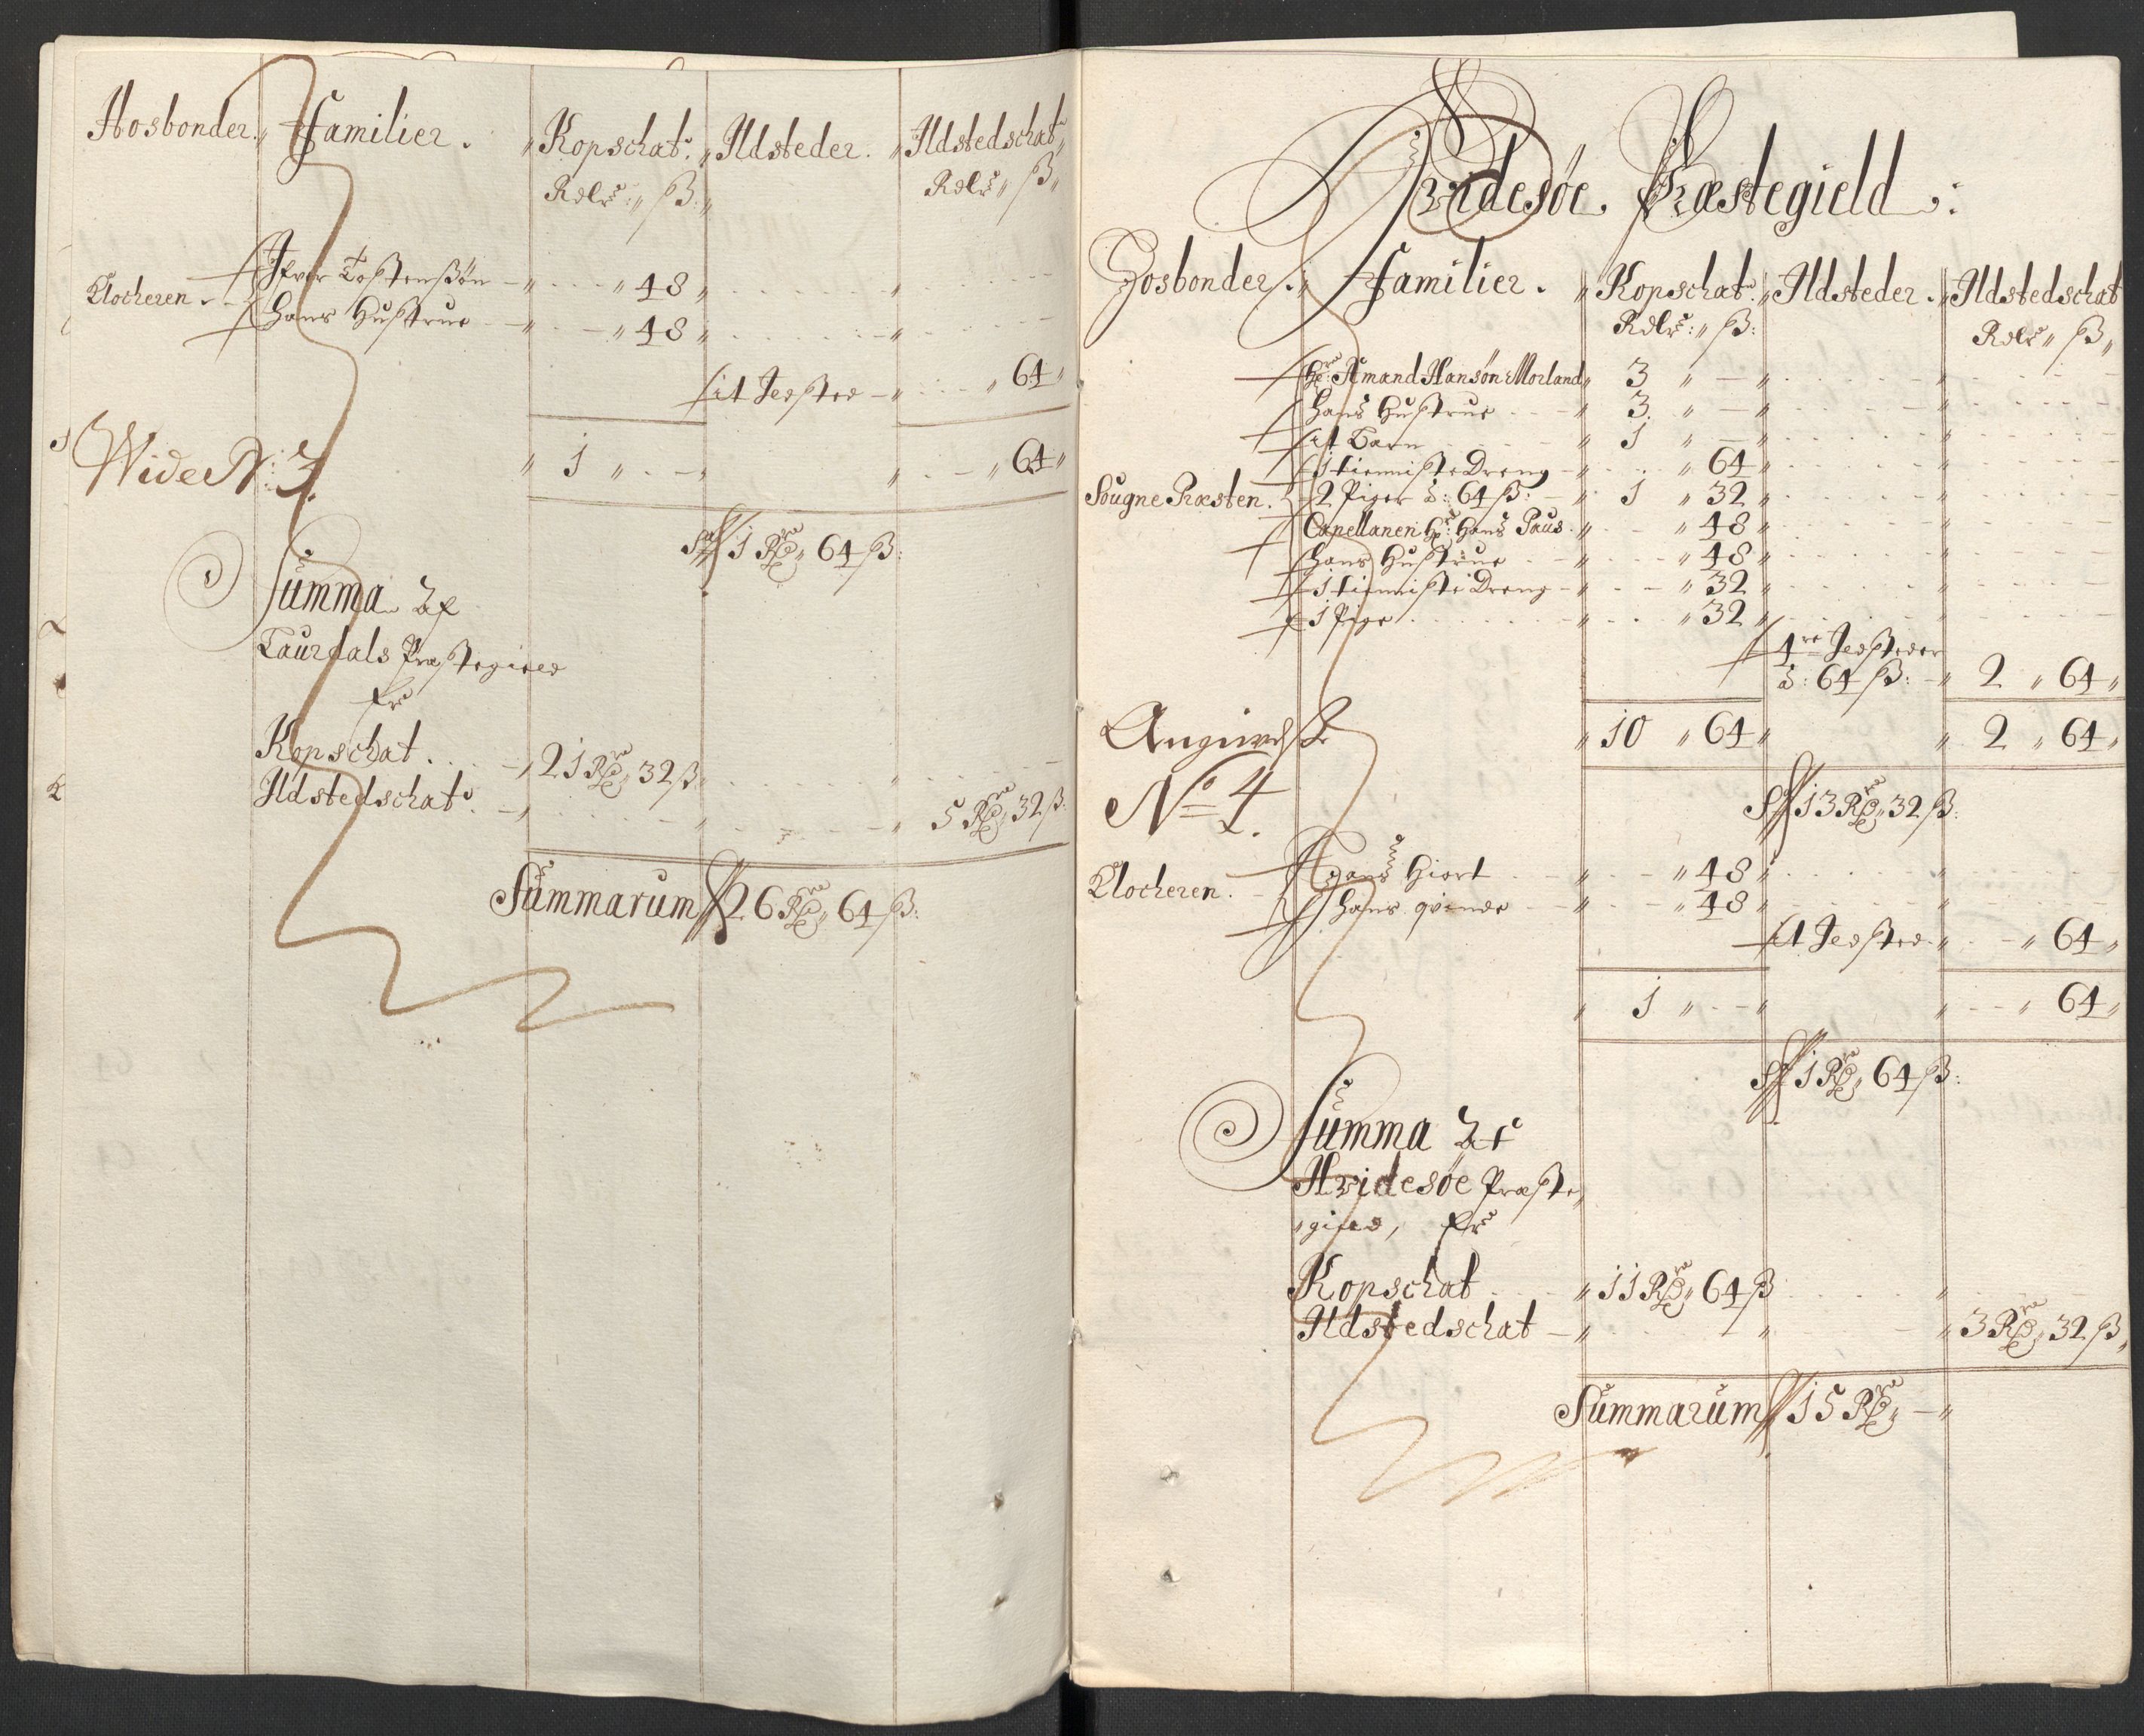 Hosbonder. Familier. Kopschat. Ildsteder. Ildstedschat
Rdlr: ß: Rdlr ß
Ifver Tostensøn 48
Klocheren. hans Hustrue 48
it Ildsted 64
Wide No: 3. 1 64
Sa 1 Rdr 64 ß:
Summa Af
Laurdals Præstegield
Er
Kopschat. 21 Rdr 32 ß
Ildstedschat. 5 Rdr 32 ß:
Summarum 26 Rdr 64 ß:
Hvidesøe Præstegield:
Hosbonder. Familier. Kopschat. Ildsteder. Ildstedschat
Rdlr: ß: Rdlr ß
Hr: Amand Hansøn Morland 3 -
hans Hustrue 3 -
it Barn 1 -
1 tienniste Dreng 64
Sougne Præsten. 2 Piger à: 64 ß: 1 32
Capellanen Hr: Hans Paus 48
hans Hustrue 48
1 tienniste Dreng 32
1 Pige 32
4re Ildsteder
à: 64 ß: 2 64
10 64 2 64
No 4 S 13 Rdr 32 ß:
Klocheren. Hans Hiort 48
hans qvinde 48
it Ildsted 64
1 - 64
S 1 Rdr 64 ß:
Summa Af
Hvidesøe Præste
gield, Er
Kopschat 11 Rdr 64 ß
Ildstedschat 3 Rdr 32 ß
Summarum 15 Rdr -